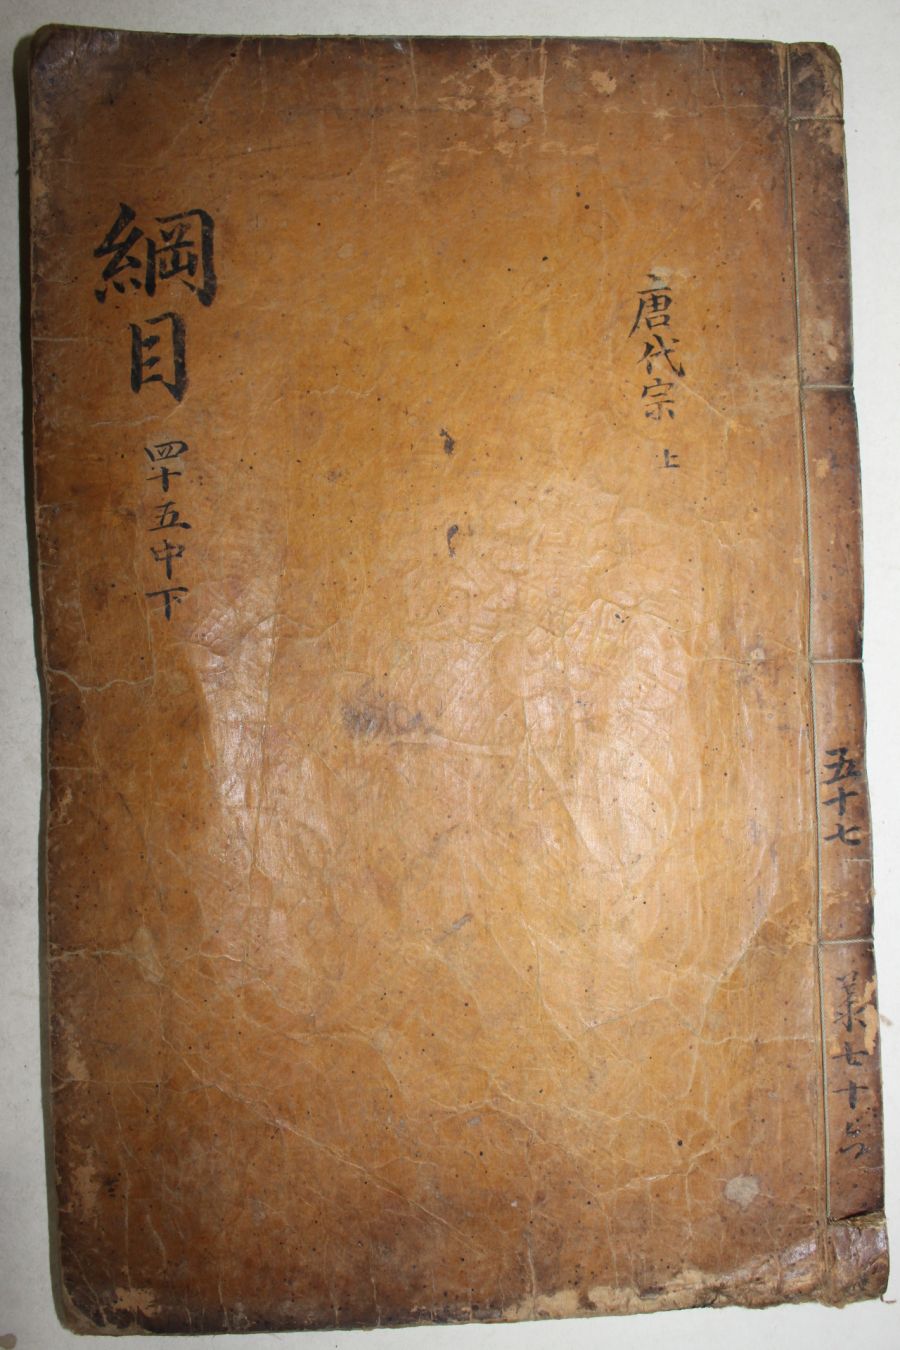 綱目
四十五中下
唐代宗
上
五十七
共七十六